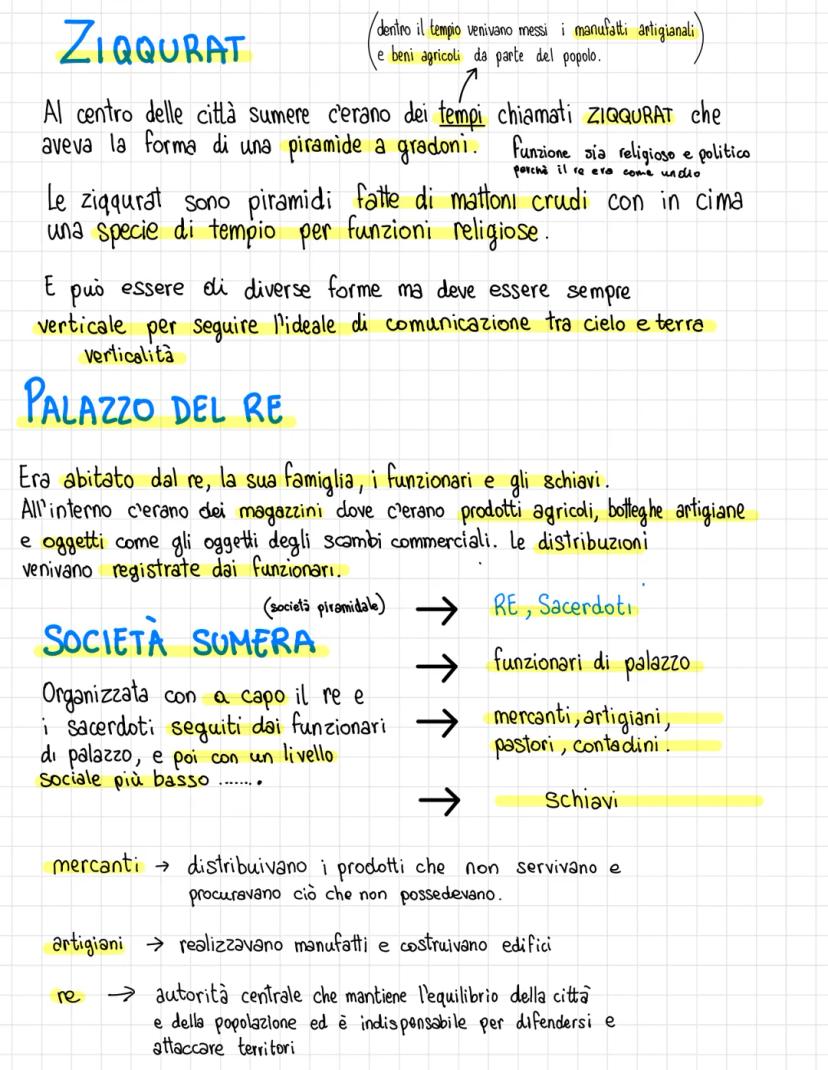 ZIQQURAT
(dentro il tempio venivano messi i manufatti artigianali
e beni agricoli da parte del popolo.)
Al centro delle città sumere c'erano dei tempi chiamati ZIQQURAT che
aveva la forma di una piramide a gradoni.
funzione sia religioso e politico
perchè il re era come un dio
Le ziqqurat sono piramidi fatte di mattoni crudi con in cima
una specie di tempio per funzioni religiose.
E può essere di diverse forme ma deve essere sempre
verticale per seguire l'ideale di comunicazione tra cielo e terra
verticalità
PALAZZO DEL RE
Era abitato dal re, la sua famiglia, i funzionari e gli schiavi.
All'interno c'erano dei magazzini dove c'erano prodotti agricoli, botteghe artigiane
e oggetti come gli oggetti degli scambi commerciali. Le distribuzioni
venivano registrate dai funzionari.
(società piramidale)
SOCIETÀ SUMERA
Organizzata con a capo il re e
i sacerdoti seguiti dai funzionari
di palazzo, e poi con un livello
sociale più basso .......
→ RE, Sacerdoti
→ funzionari di palazzo
→ mercanti, artigiani,
pastori, contadini.
→ Schiavi
mercanti → distribuivano i prodotti che non servivano e
procuravano ciò che non possedevano.
artigiani → realizzavano manufatti e costruivano edifici
re → autorità centrale che mantiene l'equilibrio della città
e della popolazione ed è indispensabile per difendersi e
attaccare territori